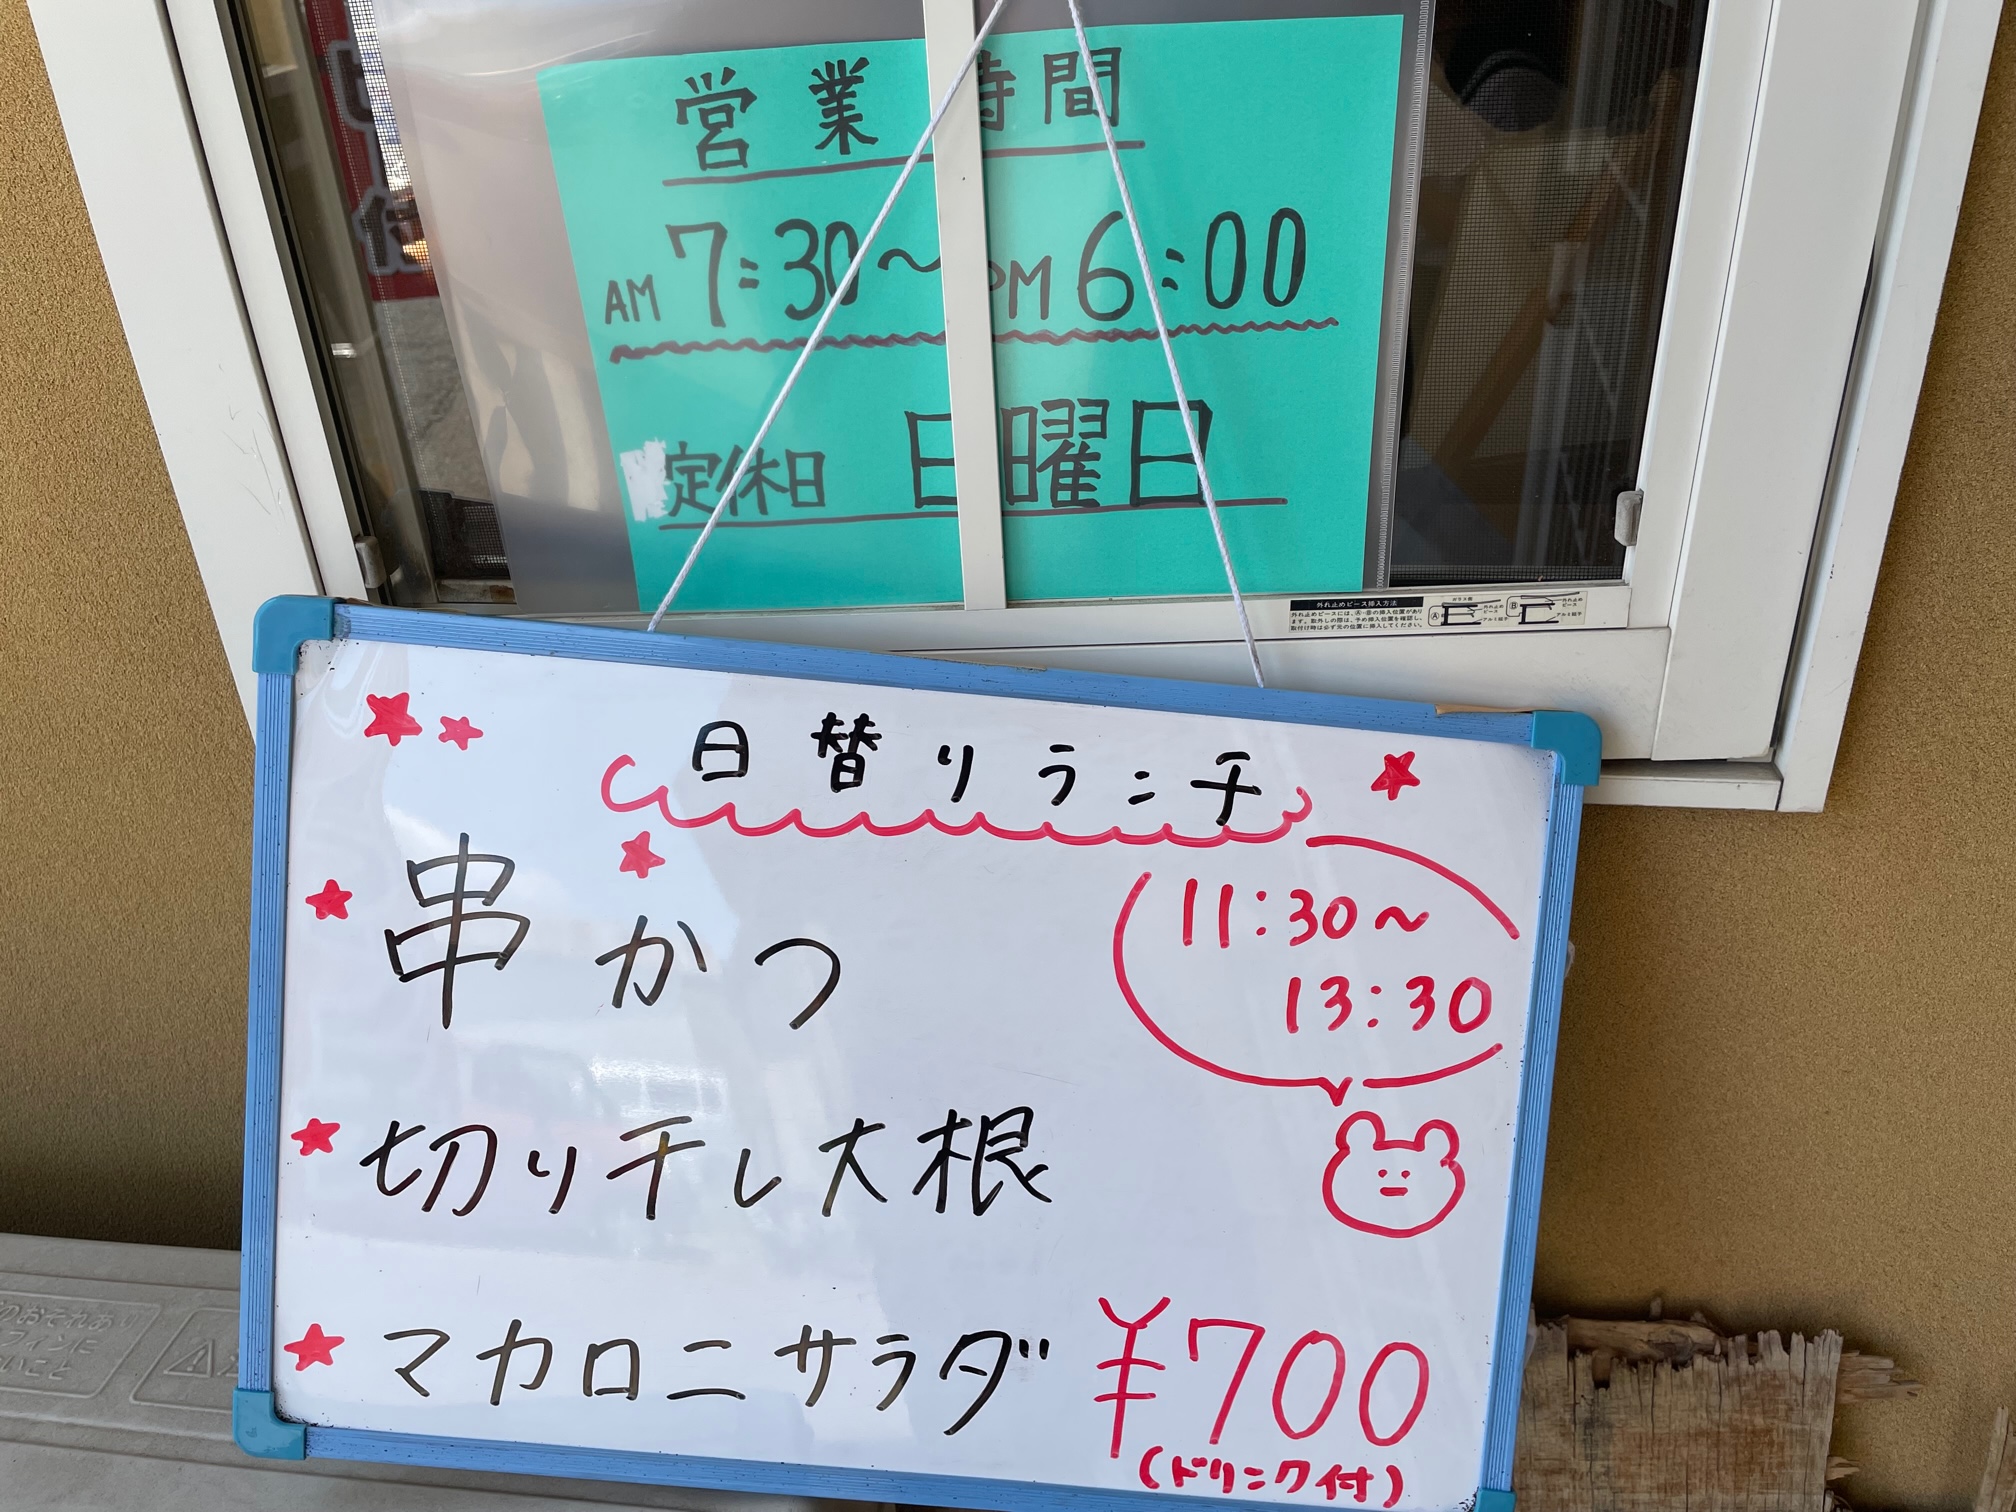 営業時間
AM 7:30〜PM 6:00
定休日 日曜日
外れ止めピース挿入方法
日替りランチ
11:30〜
13:30
串かつ
切り干し大根
マカロニサラダ ¥700
(ドリンク付)